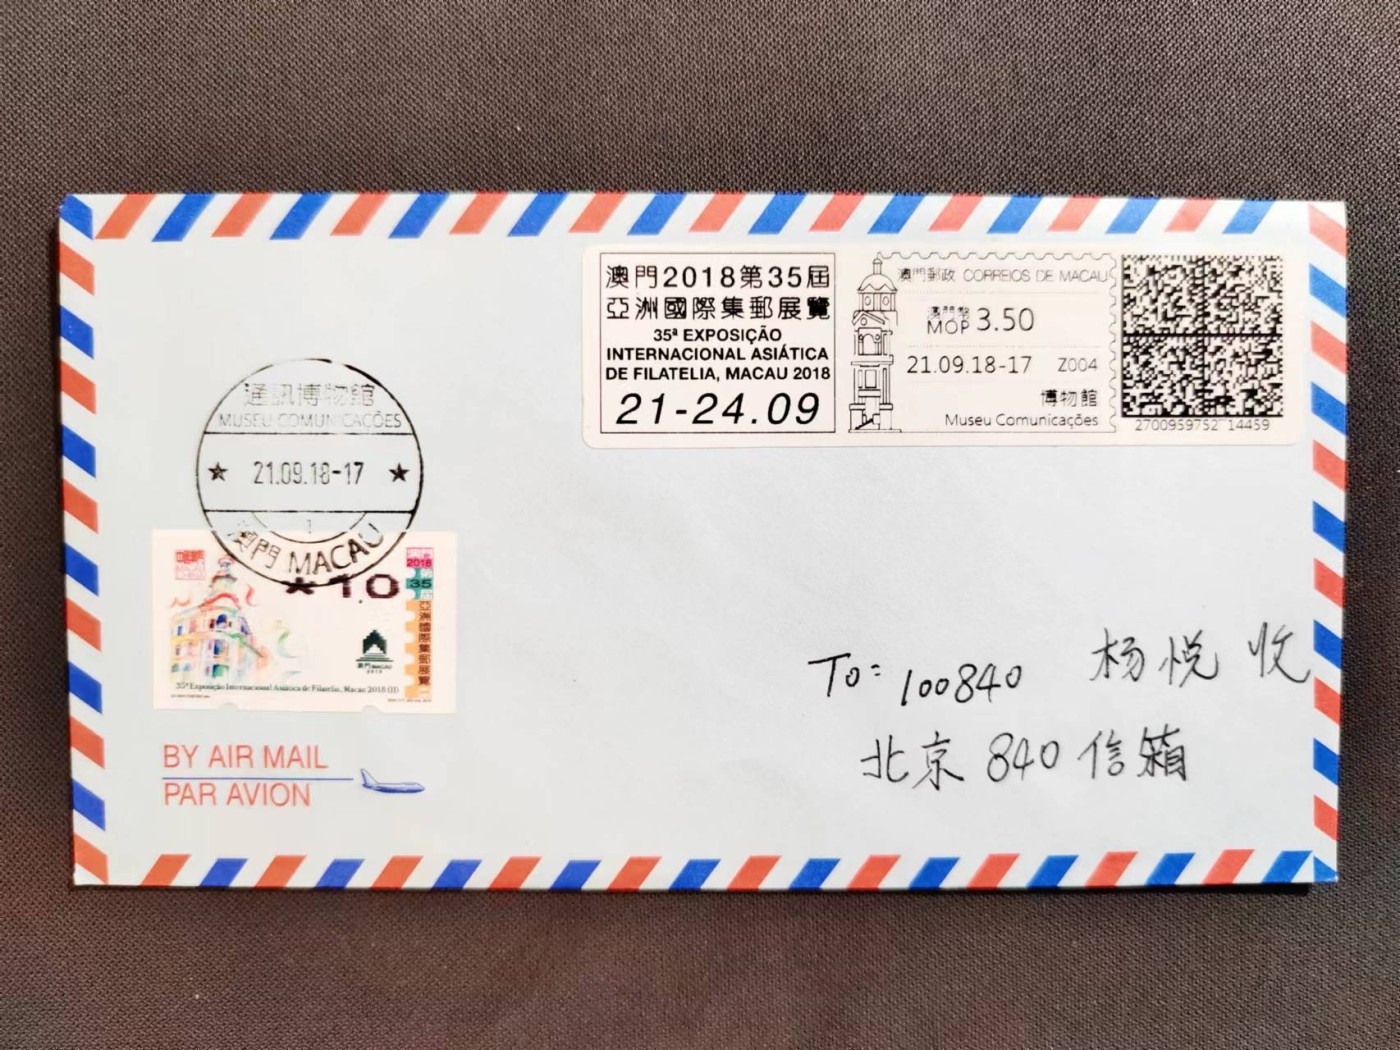 澳門2018第35屆
亞洲國際集郵展覽
35ª EXPOSIÇÃO
INTERNACIONAL ASIÁTICA
DE FILATELIA, MACAU 2018
21-24.09
澳門郵政 CORREIOS DE MACAU
澳門幣
MOP 3.50
21.09.18-17 Z004
博物館
Museu Comunicações
2700959752 14459
通訊博物館
MUSEU COMUNICAÇÕES
★ 21.09.18-17 ★
1
澳門 MACAU
*1.0
澳門
2018
第
35
屆
亞洲國際集郵展覽
澳門 MACAU
2018
35ª Exposição Internacional Asiática de Filatelia, Macau 2018 (II)
BY AIR MAIL
PAR AVION
To: 100840 杨悦 收
北京 840 信箱